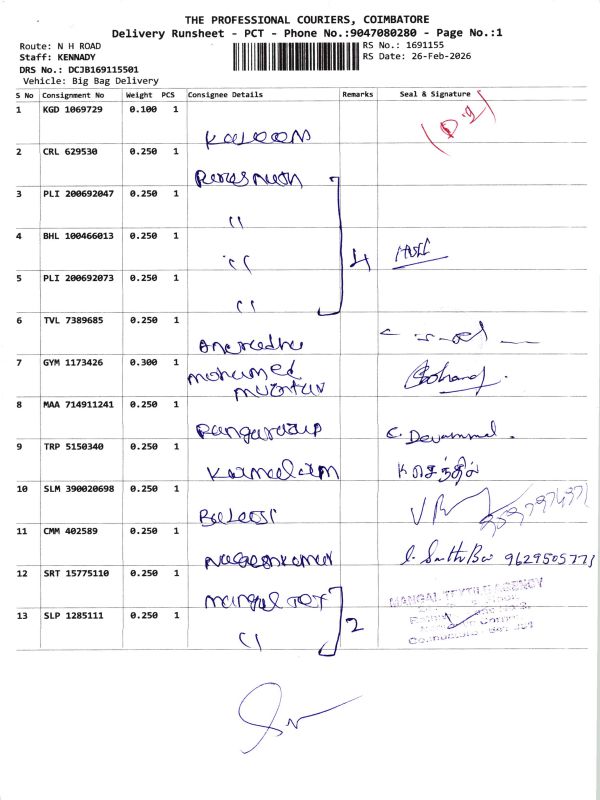 THE PROFESSIONAL COURIERS, COIMBATORE
Delivery Runsheet - PCT - Phone No.:9047080280 - Page No.:1
Route: N H ROAD
RS No.: 1691155
Staff: KENNADY
RS Date: 26-Feb-2026
DRS No.: DCJB169115501
Vehicle: Big Bag Delivery
S No Consignment No Weight PCS Consignee Details Remarks Seal & Signature
1 KGD 1069729 0.100 1
2 CRL 629530 0.250 1
3 PLI 200692047 0.250 1
"
4 BHL 100466013 0.250 1
" 4
5 PLI 200692073 0.250 1
"
6 TVL 7389685 0.250 1
7 GYM 1173426 0.300 1
mohamed
8 MAA 714911241 0.250 1
C. Devammal.
9 TRP 5150340 0.250 1
10 SLM 390020698 0.250 1
Balaji
11 CMM 402589 0.250 1
9629505773
12 SRT 15775110 0.250 1
mangal Tex
13 SLP 1285111 0.250 1
" 2